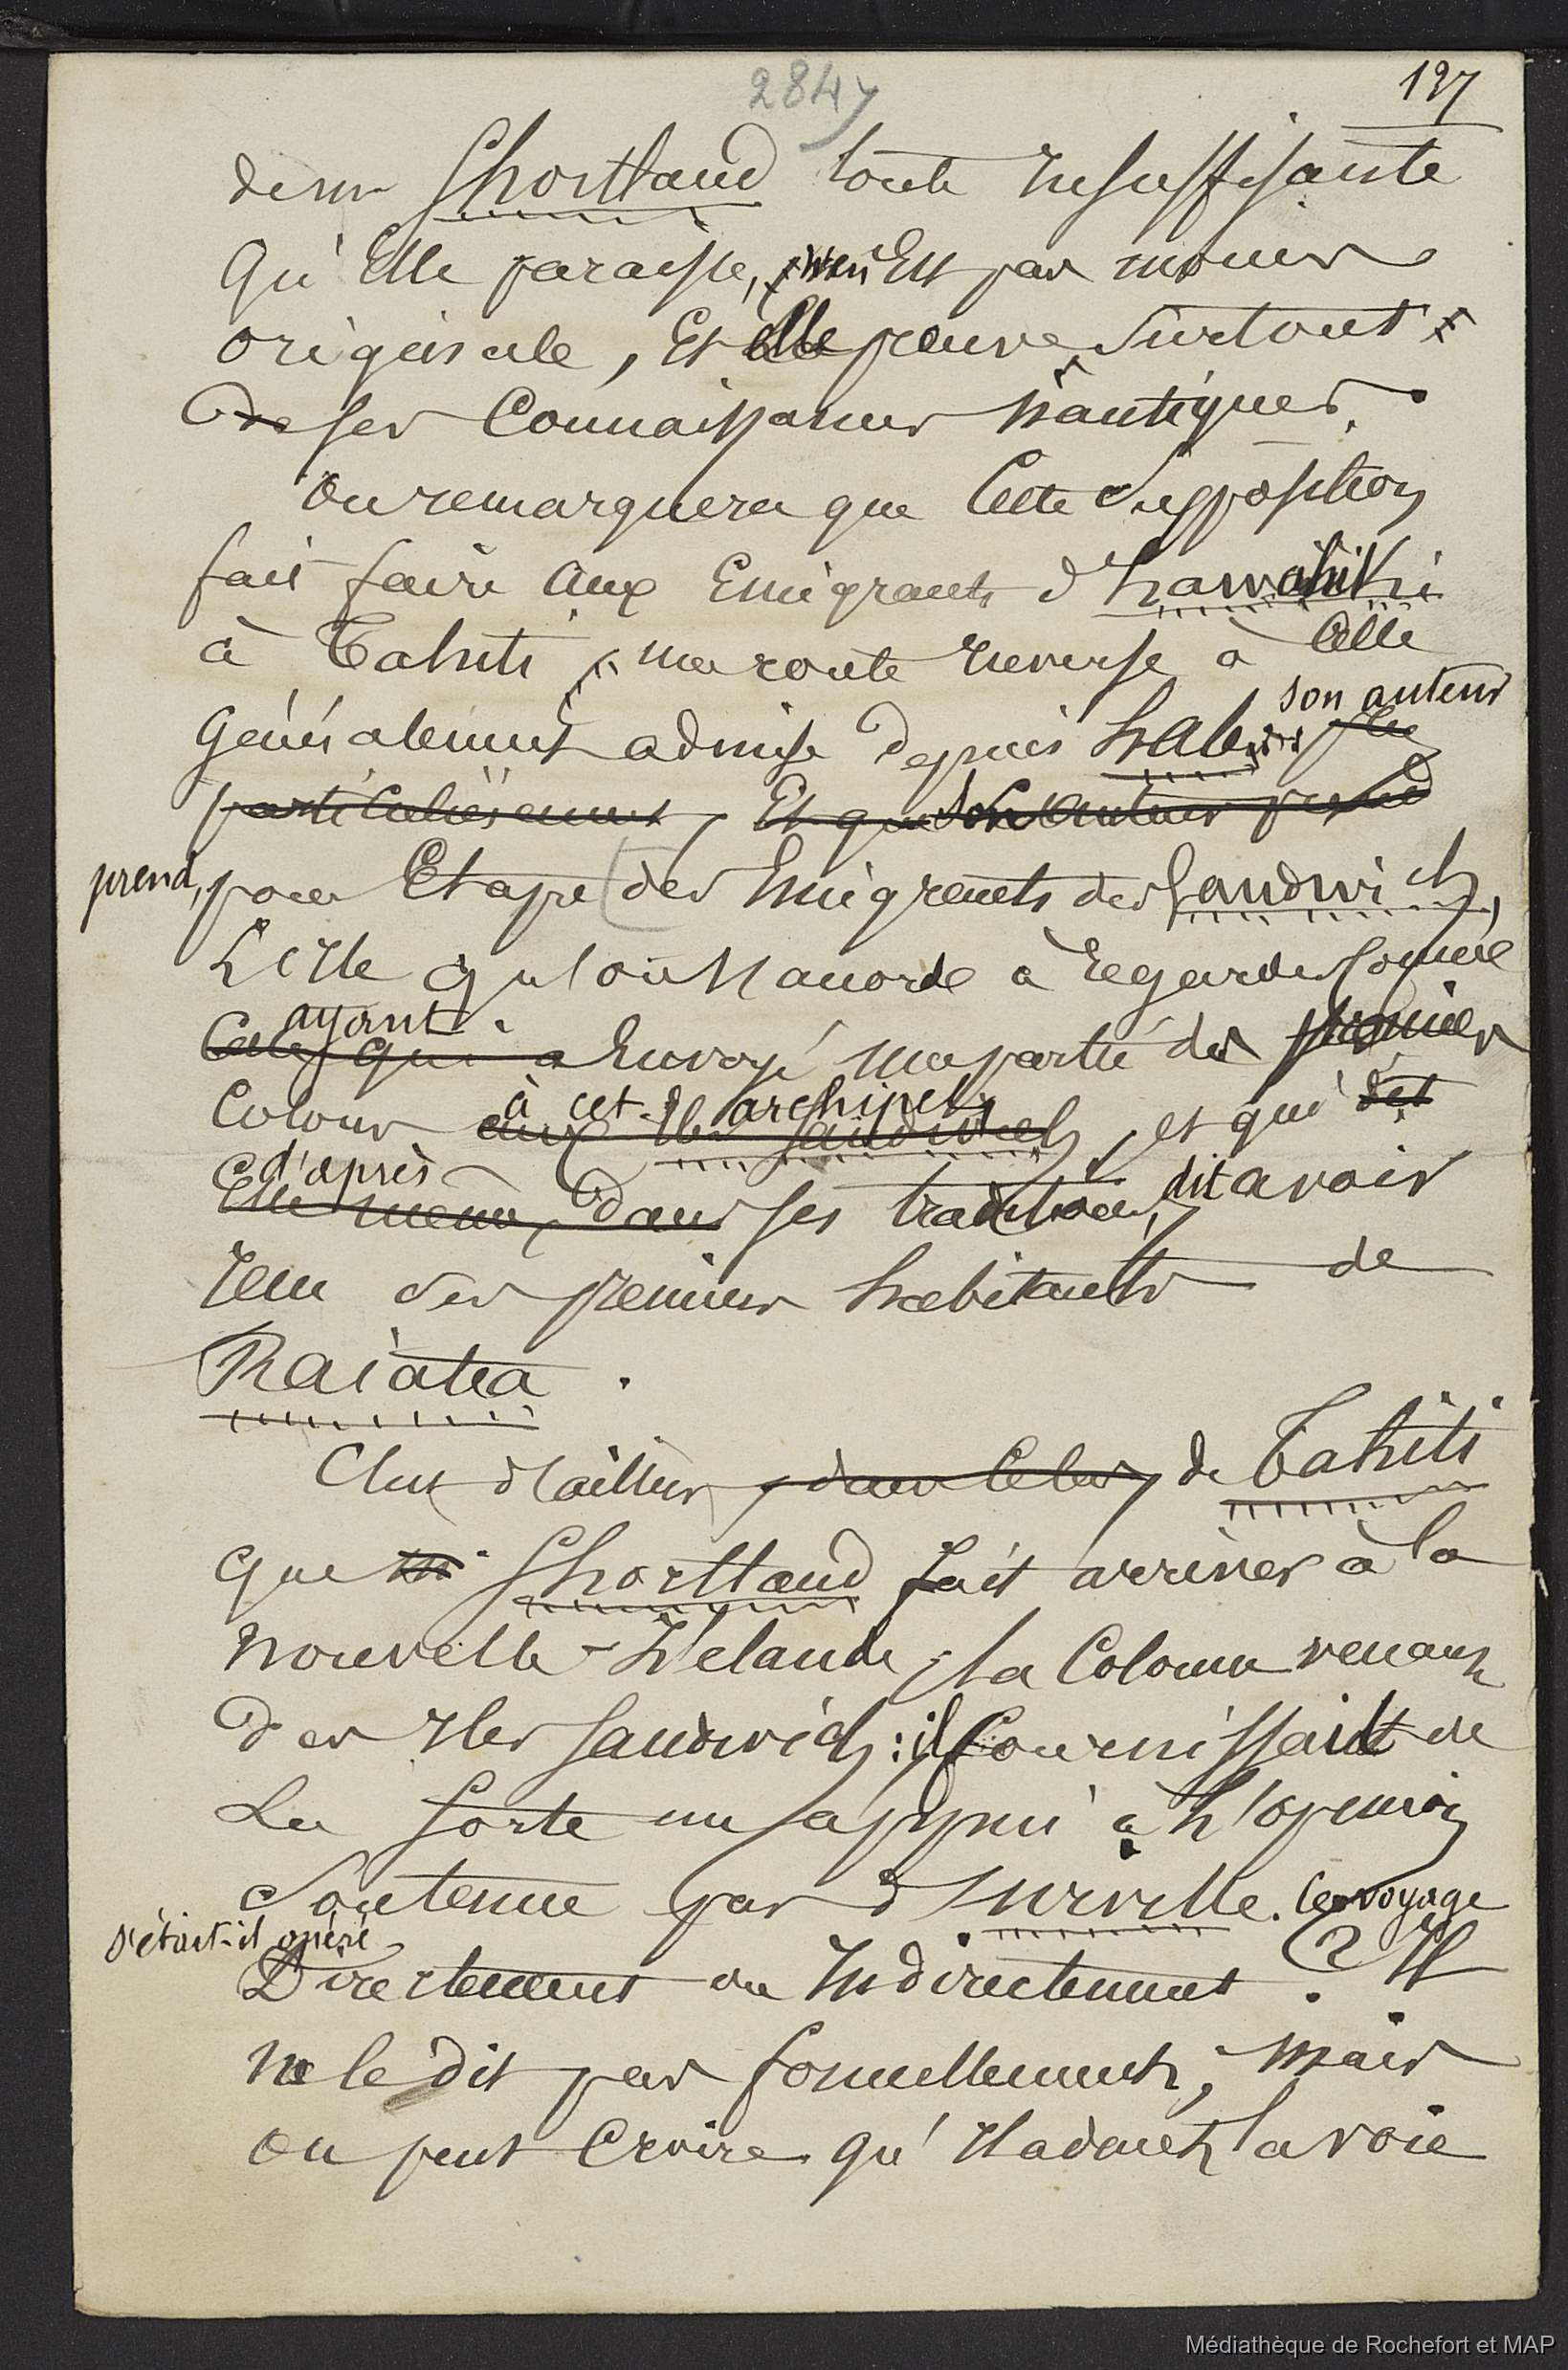 2847
197
de mr Shortland toute insuffisante
qu'Elle paraisse, n'en Est pas moins
originale, Et elle prouve surtout
de ses Connaissances nautiques.
On remarquera que Cette supposition
fait faire aux Emigrants d'hawahiki
à Tahiti, une route inverse à Celle
son auteur
généralement admise depuis hale
particulièrement, Et que son auteur prend
prend, pour Etape des Emigrants des Sandwich,
L'Ile qu'on s'accorde à regarder comme
ayant
Celle qui a Envoyé une partie des premiers
à cet archipel,
Colons aux Iles Sandwich, et qui dit
d'après
Elle même, dans ses traditions, dit avoir
reçu ses premiers habitants de
Raiatea.
C'est d'ailleurs, de Tahiti
que mr Shortland fait arriver à la
Nouvelle-Zélande, la Colonie venant
des Iles Sandwich : il fournissait de
la sorte un appui à l'opinion
Soutenue par d'urville. le voyage
s'était-il opéré
Directement ou Indirectement ? Il
ne le dit pas formellement; mais
on peut Croire qu'il admet la voie
Médiathèque de Rochefort et MAP